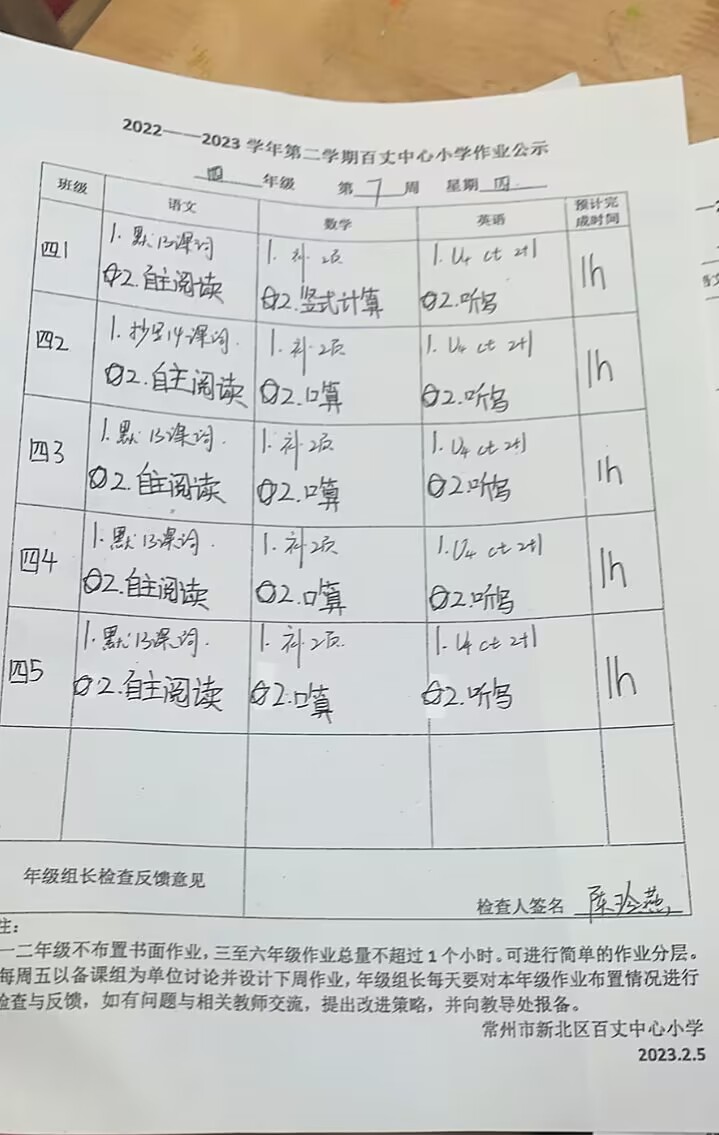 2022——2023 学年第二学期百丈中心小学作业公示
四 年级 第 7 周 星期 四
班级 语文 数学 英语 预计完成时间
四1 1. 默13课词 1. 补2页 1. U4 ct 2+1 1h
☆2.自主阅读 ☆2.竖式计算 ☆2.听写
四2 1. 抄写14课词. 1. 补2页 1. U4 ct 2+1 1h
☆2.自主阅读 ☆2.口算 ☆2.听写
四3 1. 默13课词. 1. 补2页 1. U4 ct 2+1 1h
☆2.自主阅读 ☆2.口算 ☆2.听写
四4 1. 默13课词. 1. 补2页 1. U4 ct 2+1 1h
☆2.自主阅读 ☆2.口算 ☆2.听写
四5 1. 默13课词. 1. 补2页. 1. U4 ct 2+1 1h
☆2.自主阅读 ☆2.口算 ☆2.听写
年级组长检查反馈意见
检查人签名 陈玲燕
注:
一二年级不布置书面作业,三至六年级作业总量不超过 1 个小时。可进行简单的作业分层。
每周五以备课组为单位讨论并设计下周作业,年级组长每天要对本年级作业布置情况进行
检查与反馈,如有问题与相关教师交流,提出改进策略,并向教导处报备。
常州市新北区百丈中心小学
2023.2.5